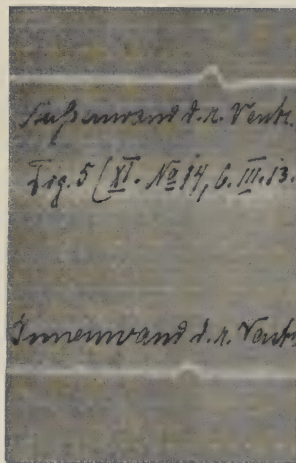 Außenwand d. r. Ventr.
Fig. 5 (XI. № 14, 6. III. 13.
Innenwand d. r. Ventr